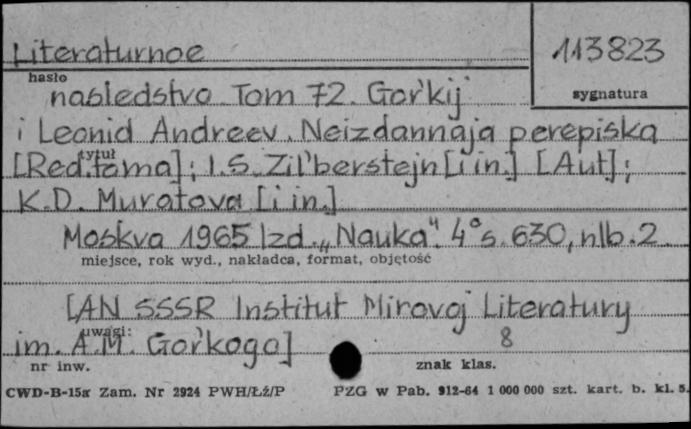 Literaturnoe
113823
hasło
sygnatura
nasledstvo. Tom 72. Gor'kij
i Leonid Andreev. Neizdannaja perepiska
tytuł
[Red. toma]: I. S. Zil'berstejn [i in.] [Aut]:
K.D. Muratova [i in.]
Moskva 1965 Izd. „Nauka". 4° s. 630, nlb. 2.
miejsce, rok wyd., nakładca, format, objętość
[AN SSSR Institut Mirovoj Literatury
uwagi:
im. A.M. Gor'kogo]
8
nr inw.
znak klas.
CWD-B-15a Zam. Nr 2924 PWH/Łź/P
PZG w Pab. 912-64 1 000 000 szt. kart. b. kl. 5.